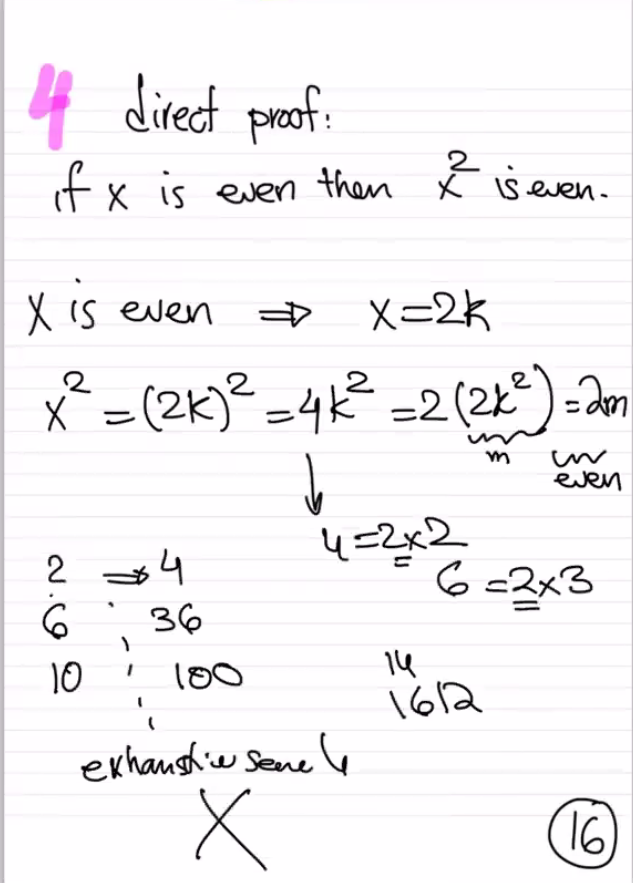 4 direct proof:
if x is even then x² is even.
X is even ⇒ x=2k
x² = (2k)² = 4k² = 2(2k²) = 2m
m
even
↓
4=2x2
6=2x3
2 ⇒ 4
6 36
10 100
14
1612
X
16